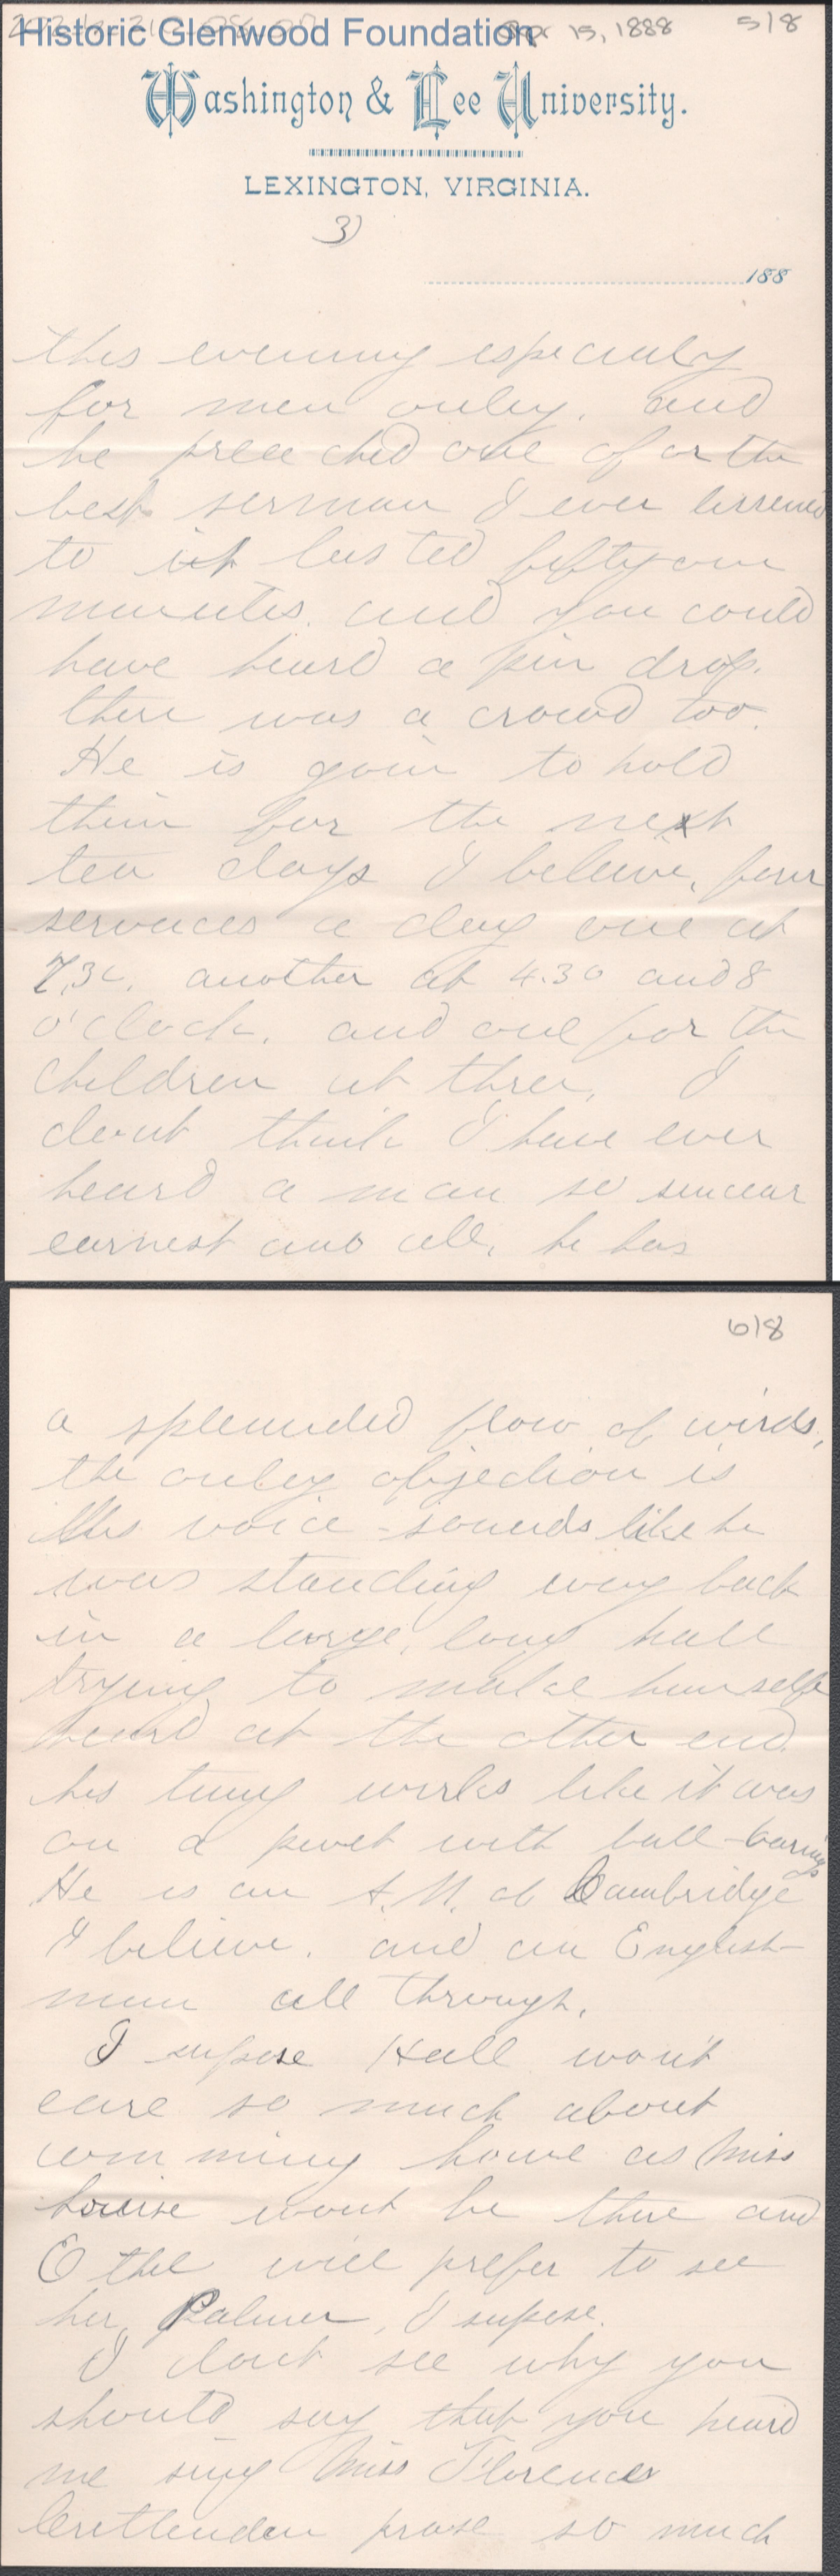 Historic Glenwood Foundation
15, 1888 5/8
Washington & Lee University.
LEXINGTON, VIRGINIA.
3)
188
this evening especialy
for men onley. and
he preached one of or the
best sermon I ever lissened
to it lasted fifty one
minutes. and you could
have heard a pin drop.
there was a crowd too.
He is goin to hold
them for the next
ten days I beleive, four
services a day one at
7.30, another at 4.30 and 8
o'clock. and one for the
children at three. I
dont think I have ever
heard a man so sincear
earnest and all, he has
6/8
a splended flow of words,
the onley objection is
His voice - sounds like he
was standing way back
in a large, long hall
trying to make himself
heard at the other end.
his tung works like it was
on a pivet with ball-barings
He is an A.M. of Cambridge
I believe. and an English-
man all through.
I supose Hall won't
care so much about
comming home as Miss
Louise wont be there and
Ethel will prefer to see
her Palmer, I supose.
I dont see why you
should say that you heard
me sing Miss Florences
Crittenden prase so much